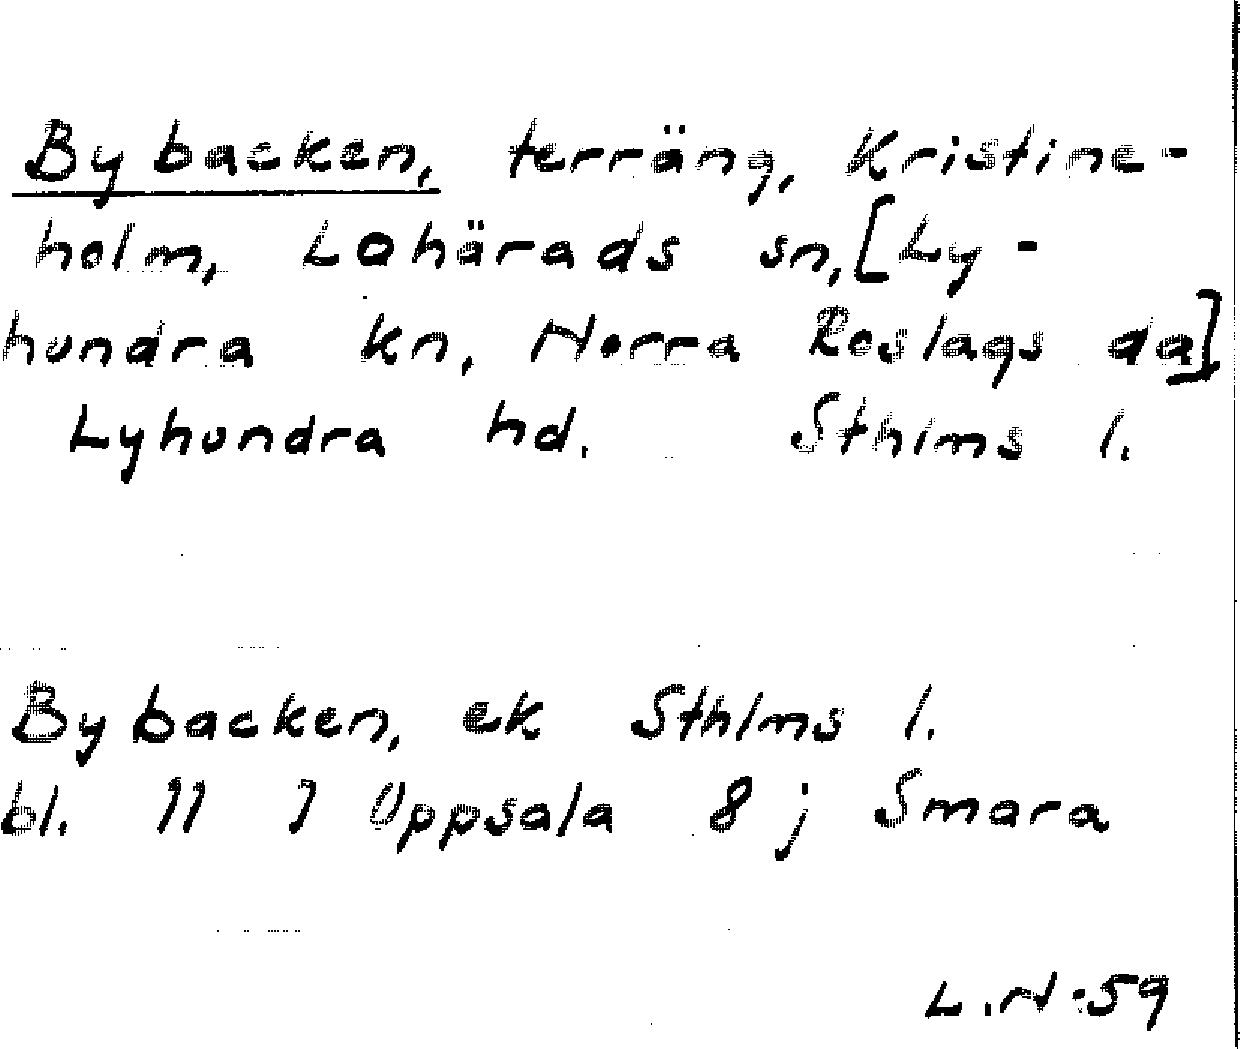 Bybacken, terräng, Kristine-
holm, Lohärads sn, [Ly-
hundra kn, Norra Roslags da]
Lyhundra hd. Sthlms l.
Bybacken, ek Sthlms l.
bl. 11 I Uppsala 8 j Smara
L.N.59